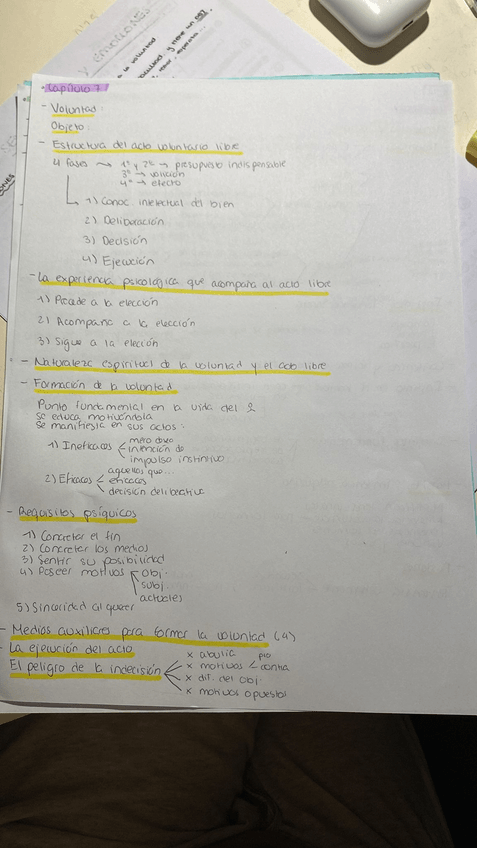 y EMOCIONES
a la voluntad
Capítulo 7
- Voluntad:
Objeto:
- Estructura del acto voluntario libre
4 fases → 1º y 2º → presupuesto indispensable
3º → volición
4º → efecto
1) Conoc. intelectual del bien
2) Deliberación
3) Decisión
4) Ejecución
- La experiencia psicológica que acompaña al acto libre
1) Precede a la elección
2) Acompaña a la elección
3) Sigue a la elección
- Naturaleza espiritual de la voluntad y el acto libre
- Formación de la voluntad
Punto fundamental en la vida del
se educa motivándola
se manifiesta en sus actos:
1) Ineficaces < mero deseo
intención de
impulso instintivo
2) Eficaces < aquellos que...
eficaces
decisión deliberativa
- Requisitos psíquicos
1) Concretar el fin
2) Concretar los medios
3) Sentir su posibilidad
4) Poseer motivos < obj.
subj.
actuales
5) Sinceridad al querer
- Medios auxiliares para formar la voluntad (4)
- La ejecución del acto
El peligro de la indecisión < x abulia
x motivos < pro
contra
x dif. del obj.
x motivos opuestos